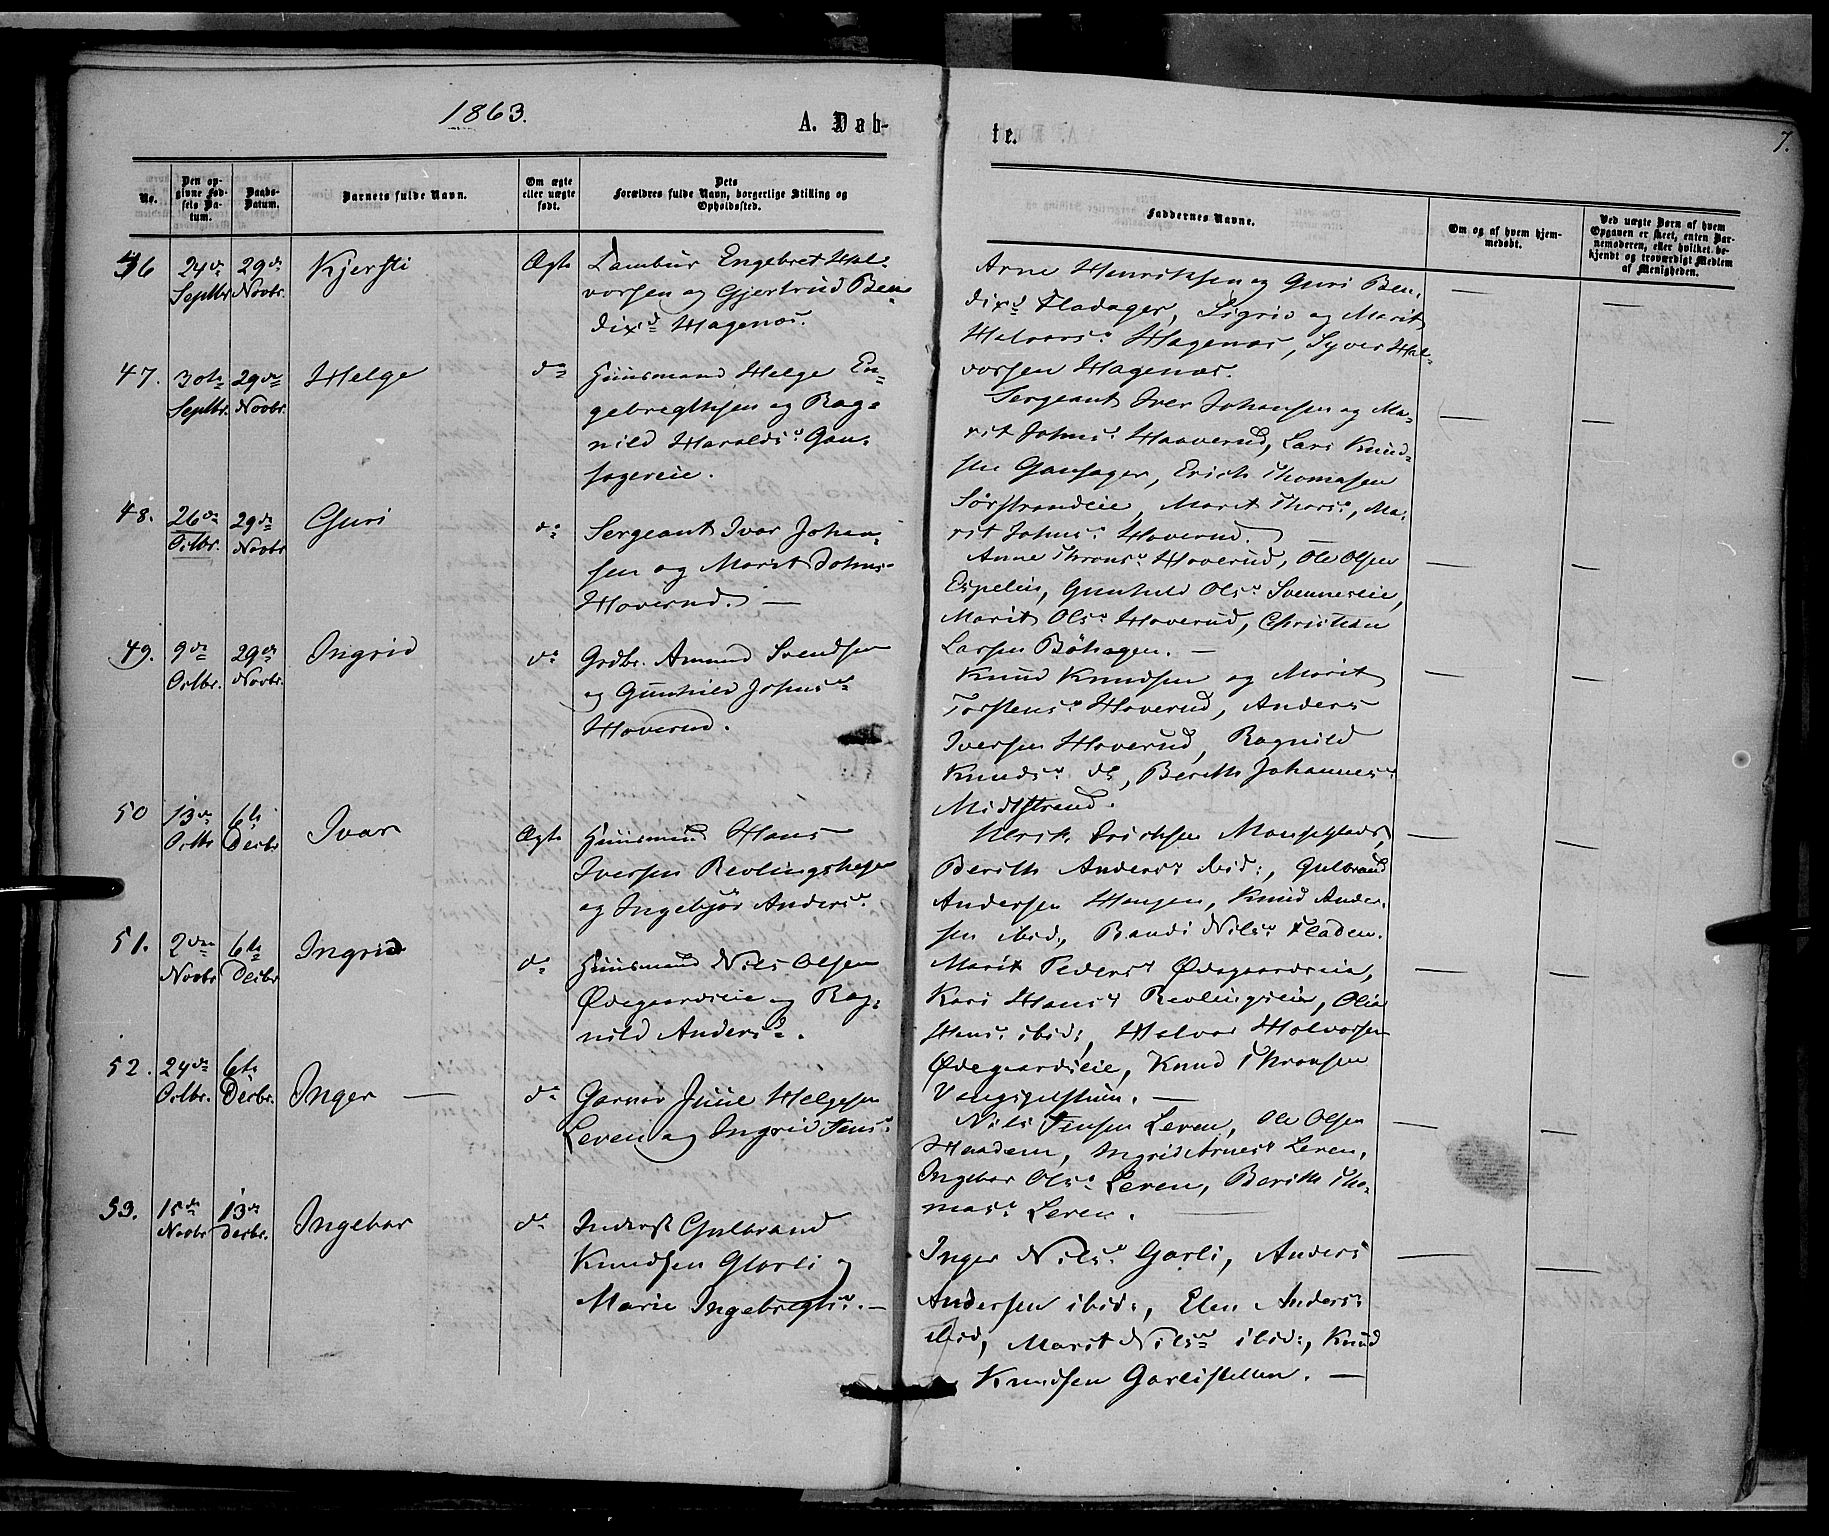 1863.
A. Døb-
te.
7.
No.
Den op-
givne Fød-
sels Da-
tum.
Daabs-
Datum.
Barnets fulde Navn.
Om ægte
eller uægte
født.
Dets
Forældres fulde Navn, borgerlige Stilling og
Opholdssted.
Faddernes Navne.
Om og af hvem hjem-
medøbt.
Ved uægte Børn af hvem
Opgaven er skeet, enten Bar-
nemoderen, eller hvilket be-
kjendt og troværdigt Medlem
af Menigheden.
46 24de 29de Kjersti Ægte Engebret Hal-
Septbr. Novbr. vorsen og Gjertrud Ben-
dixd. Hagenæs.
Arne Henriksen og Guri Ben-
dixd. Fladager, Sigrid og Marit
Halvorsd. Hagenæs, Syver Hal-
vorsen Hagenæs.
47. 30te 29de Helge do Huusmand Helge En-
Septbr. Novbr. gebregtsen og Rag-
nild Haraldsd. Gan-
sagereie.
Sergeant Iver Johansen og Ma-
rit Johnsd. Haaverud, Lars Knud-
sen Gansager, Erich Thomasen
Sørstrandeie, Marit Thorsd., Ma-
rit Johnsd. Hoverud. —
48. 26de 29de Guri do Sergeant Ivar Johan-
Octbr. Novbr. sen og Marit Johnsd.
Hoverud. —
Anne Thronsd. Hoverud, Ole Olsen
Espelin, Gunhild Olsd. Svenneseie,
Marit Olsd. Hoverud, Christian
Larsen Bøhagen. —
49. 9de 29de Ingrid do Grdbr. Amund Svendsen
Octbr. Novbr. og Gunhild Johnsd.
Hoverud.
Knud Knudsen og Marit
Torstensd. Hoverud, Anders
Iversen Hoverud, Ragnild
Knudsd. do, Berith Johannesd.
Midtstrand.
50 13de 6te Ivar Ægte Huusmand Hans
Octbr Decbr Iversen Revlingshagen
og Ingebjør Andersd.
Ulrik Erichsen
Berith Andersd. ibid:, Gulbrand
Andersen Haugen, Knud Ander-
sen ibid:, Randi Nilsd. Fladen.
51. 2den 6te Ingrid do Huusmand Nils Olsen
Novbr Decbr Ødegaardseie og Rag-
nild Andersd.
Marit Pedersd. Ødegaardseie,
Kari Hansd. Revlingseie, Olia
Hansd. ibid:, Halvor Halvorsen
Ødegaardseie, Knud Thronsen
52. 24de 6te Inger — do Garver Juul Helgesen
Octbr. Decbr. Leren og Ingrid Jensd.
Nils Jensen Leren, Ole Olsen
Haadem, Ingrid Arnesd. Leren,
Ingebor Olsd. Leren, Berith Tho-
masd. Leren.
53. 15de 13de Ingebor do Inderst Gulbrand
Novbr Decbr. Knudsen Garli og
Marie Ingebregtsd. —
Inger Nilsd. Garli, Anders
Andersen ibid:, Elen Andersd.
ibid, Marit Nilsd. ibid:, Knud
Knudsen Garlistellen. —